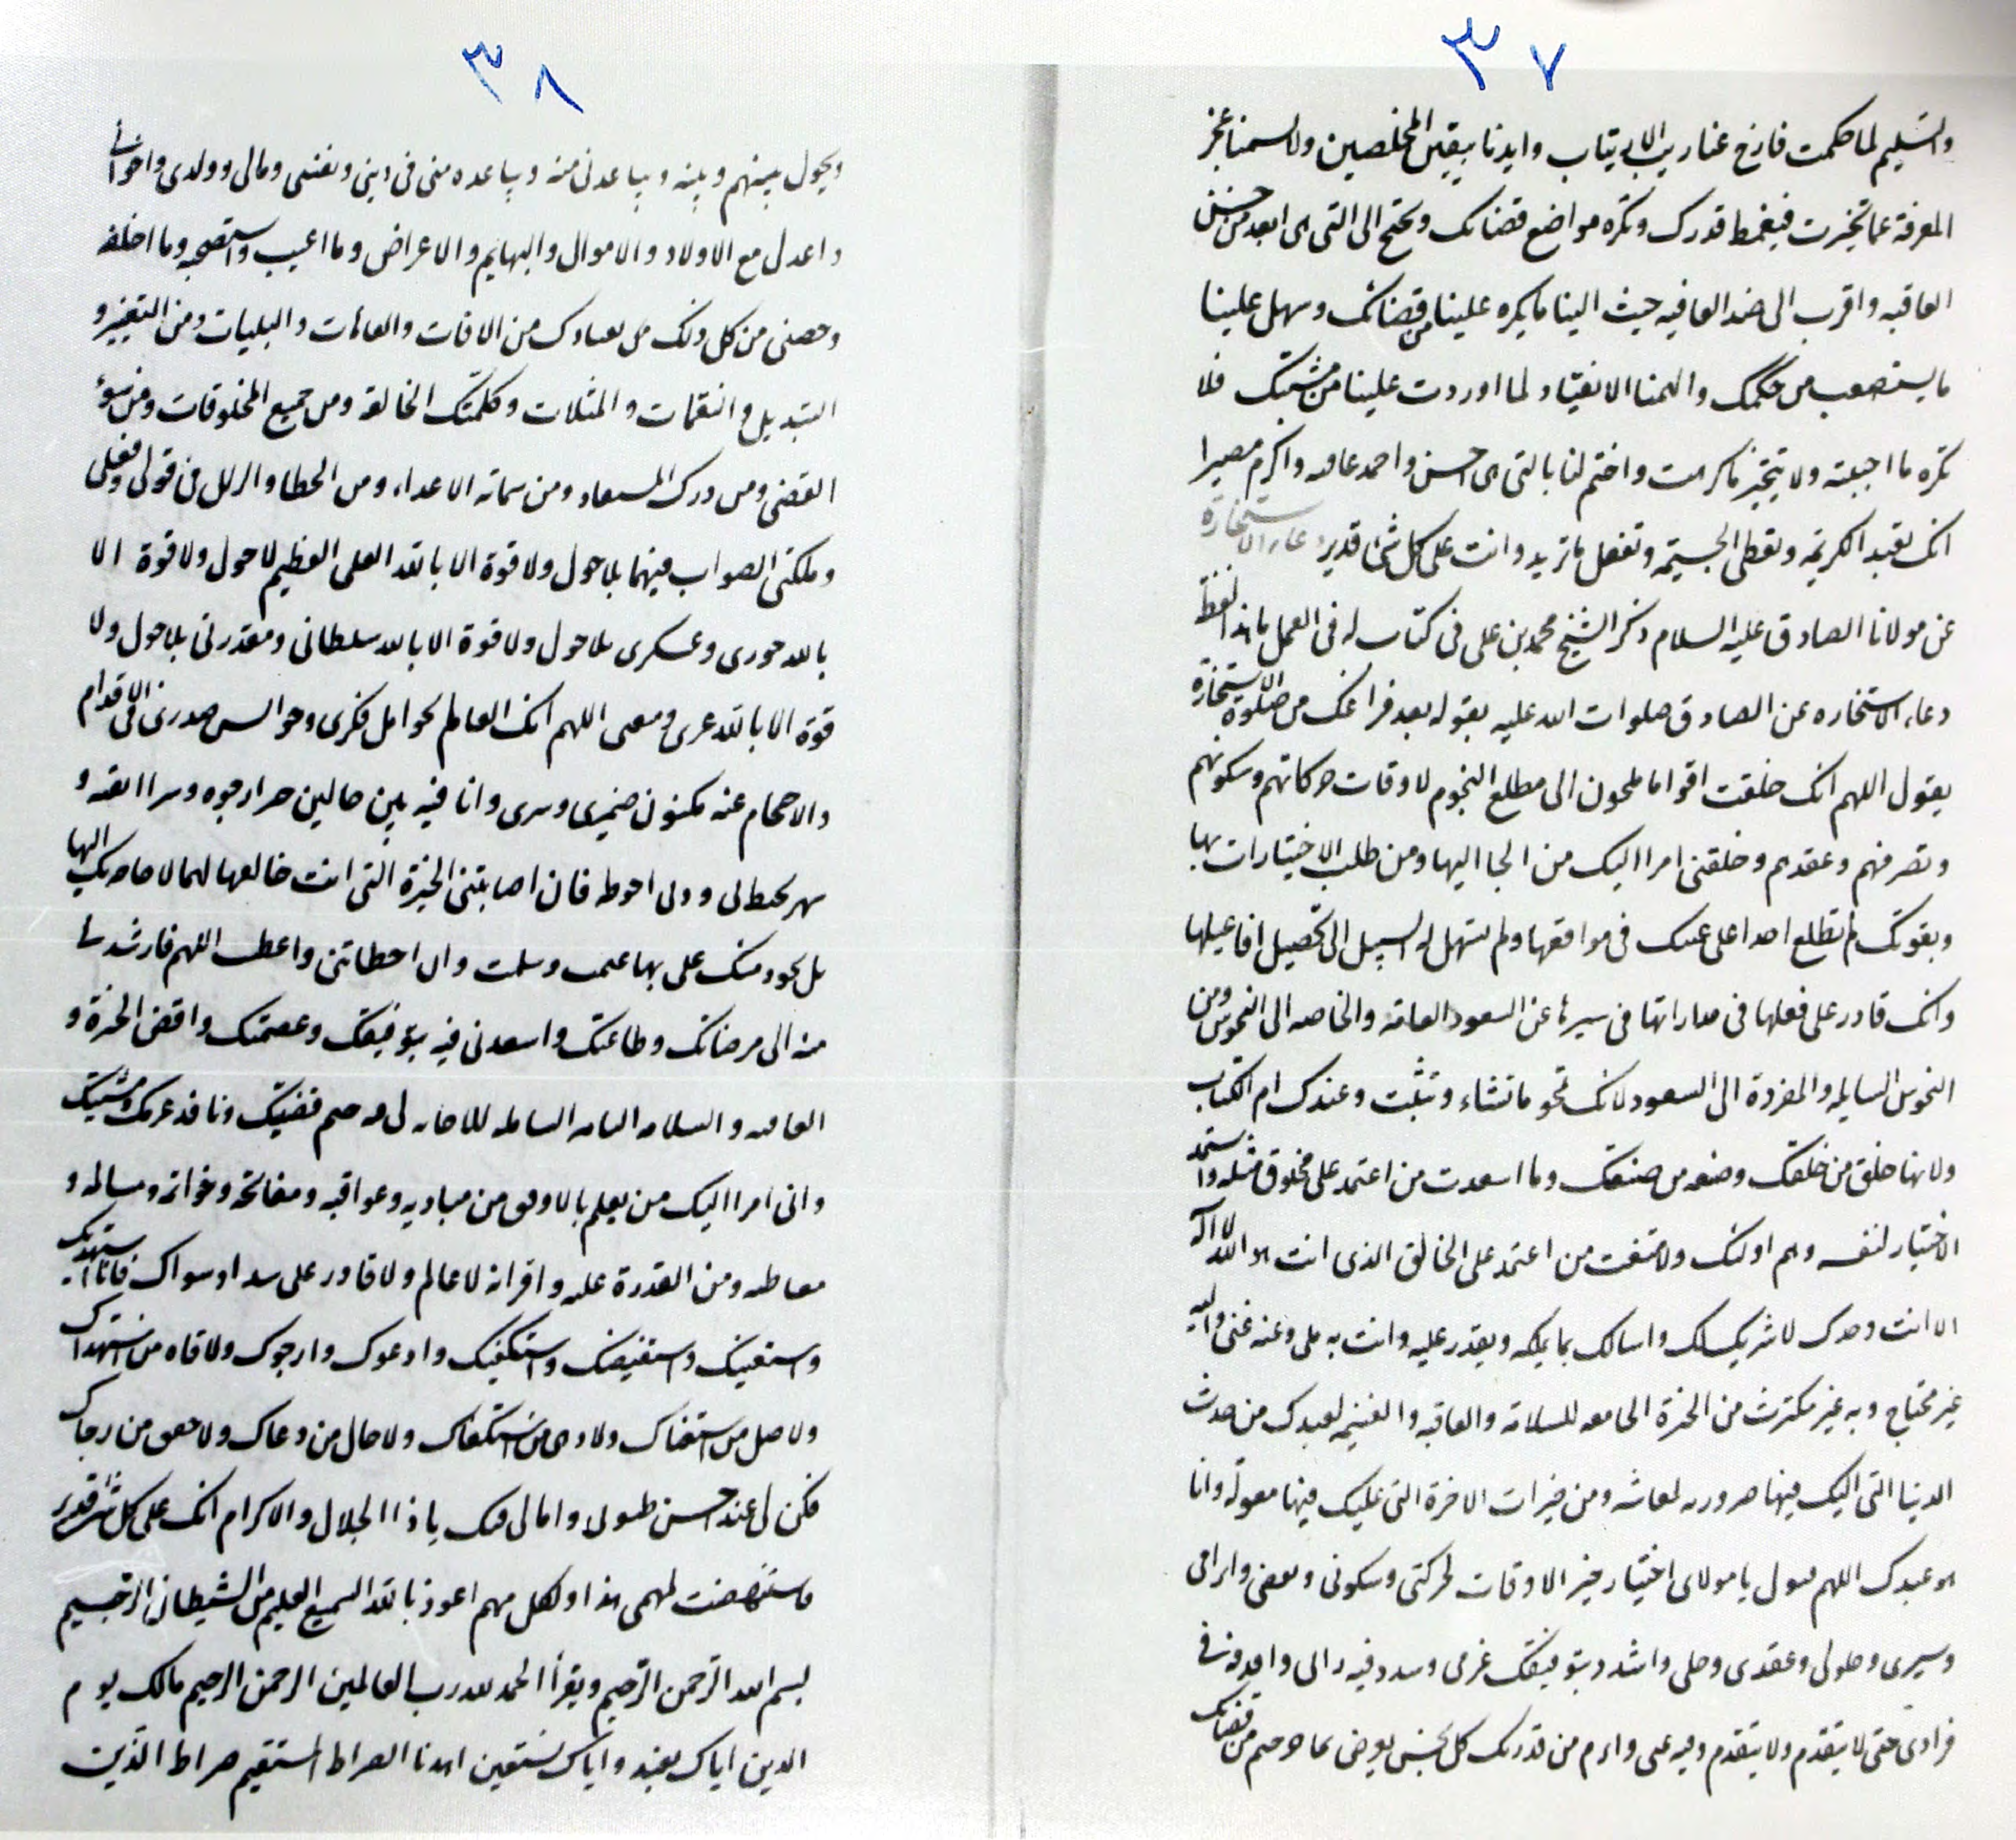 ٣٧
والتسليم لما حكمت فازح عنا ريب الارتياب وايدنا بيقين المخلصين ولا تسمنا عجز
المعرفة عما تخيرت فيغمط قدرك ونكره مواضع قضائك ونجنح الى التى هى ابعد من حسن
العاقبه واقرب الى ضد العافيه حبب الينا ما يكره علينا من قضائك وسهل علينا
ما يستصعب من حكمك والهمنا الانقياد لما اوردت علينا من مشيتك فلا
نكره ما احببته ولا نتخير ما كرهت واختم لنا بالتى هى احسن واحمد عاقبه واكرم مصيرا
انك تفيد الكريمه وتعطى الجسيمه وتفعل ما تريد وانت على كل شئ قدير دعاء الاستخارة
عن مولانا الصادق عليه السلام ذكر الشيخ محمد بن على فى كتاب له فى العمل ما هذا لفظه
دعاء الاستخاره عن الصادق صلوات الله عليه يقوله بعد فراغك من صلوة الاستخارة
يقول اللهم انك خلقت اقواما يلجون الى مطلع النجوم لاوقات حركاتهم وسكونهم
وتصرفهم وعقدهم وخلقتنى ابرا اليك من الجا اليها ومن طلب الاختيارات بها
ولم تطلع احدا على غيبك فى مواقعها ولم تسهل له السبيل الى تحصيل افاعيلها
وانك قادر على نقلها فى مداراتها فى سيرها عن السعود العامه والخاصه الى النحوس ومن
النحوس الشامله والمفردة الى السعود لانك تمحو ما تشاء وتثبت وعندك ام الكتاب
ولانها خلق من خلقك وصنعه من صنعك وما اسعدت من اعتمد على مخلوق مثله واستمد
الاختيار لنفسه وهم اولئك ولا من اعتمد على الخالق الذى انت هو الله لا اله
الا انت وحدك لا شريك لك واسالك بما تملكه وتقدر عليه وانت به ملى وعنه غنى واليه
غير محتاج وبه غير مكترث من الخيرة الجامعه للسلامة والعافيه والغنيمه لعبدك من حدث
الدنيا التى اليك فيها ضرورته لمعاشه ومن خيرات الاخرة التى عليك فيها معوله وانا
هو عبدك اللهم فتول يا مولاى اختيار خير الاوقات لحركتى وسكونى ونقضى وابرامى
وسيرى وحلولى وعقدى وحلى واشدد بتوفيقك عزمى وسدد فيه رائى واقذفه فى
فؤادى حتى لا يتقدم ولا يتقدم وقته عنى وابرم من قدرتك كل نحس يعرض بحاجز حتم من قضائك
٣٨
ويحول بينهم وبينه ويباعدنى منه ويباعده منى فى دينى ونفسى ومالى وولدى واخوانى
واعذنى من الاولاد والاموال والبهايم والاعراض وما احضره وما اغيب واستصحبه وما اخلفه
وحصنى من كل ذلك بعياذك من الافات والعاهات والبليات ومن التغيير و
التبديل والنقمات والمثلات وكلمتك الحالقه ومن جميع المخلوقات ومن سوء
القضى ومن درك الشقاء ومن شماته الاعداء ومن الخطا والزلل فى قولى وفعلى
وملكنى الصواب فيهما بلا حول ولا قوة الا بالله العلى العظيم لا حول ولا قوة الا
بالله حرزى وعسكرى بلا حول ولا قوة الا بالله سلطانى ومقدرتى بلا حول ولا
قوة الا بالله عزى ومنعتى اللهم انك العالم بجوايل فكرى وحوايس صدرى فى الاقدام
والاحجام عنه مكنون ضميرى وسرى وانا فيه بين حالين خير ارجوه وشر اتقيه و
سهو يحيط بى ودين احوطه فان اصابتنى الخيرة التى انت خالقها لتهبها لى لا حاجه بك اليها
بل بجود منك على بها غنمت وسلمت وان اخطاتنى حسرت وعطبت اللهم فارشدنى
منه الى مرضاتك وطاعتك واسعدنى فيه بتوفيقك وعصمتك واقض الخيرة و
العافيه والسلامه التامه الشامله الدائمه لى فيه حتم قضيتك ونافذ عزمك ومشيتك
وانى ابرا اليك من العلم بالاوفق من مباديه وعواقبه ومفاتحه وخواتمه ومسالمه و
معاطبه ومن القدرة عليه واقر انه لا عالم ولا قادر على سداده سواك فانا استهديك
واستعينك واستقضيك واستكفيك وادعوك وارجوك ولا تاه من استهداك
ولا ضل من استفتاك ولا دهى من استكفاك ولا حال من دعاك ولا اخفق من رجاك
فكن لى عند احسن ظنونى وامالى فيك يا ذا الجلال والاكرام انك على كل شئ قدير
واستنهضت لمهمى هذا ولكل مهم اعوذ بالله السميع العليم من الشيطان الرجيم
بسم الله الرحمن الرحيم ويقرأ الحمد لله رب العالمين الرحمن الرحيم مالك يوم
الدين اياك نعبد واياك نستعين اهدنا الصراط المستقيم صراط الذين